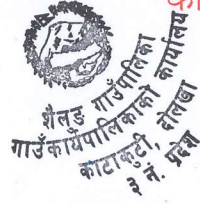 शैलुङ गाउँपालिका
गाउँ कार्यपालिकाको कार्यालय
काटाकुटी, दोलखा
३ नं. प्रदेश